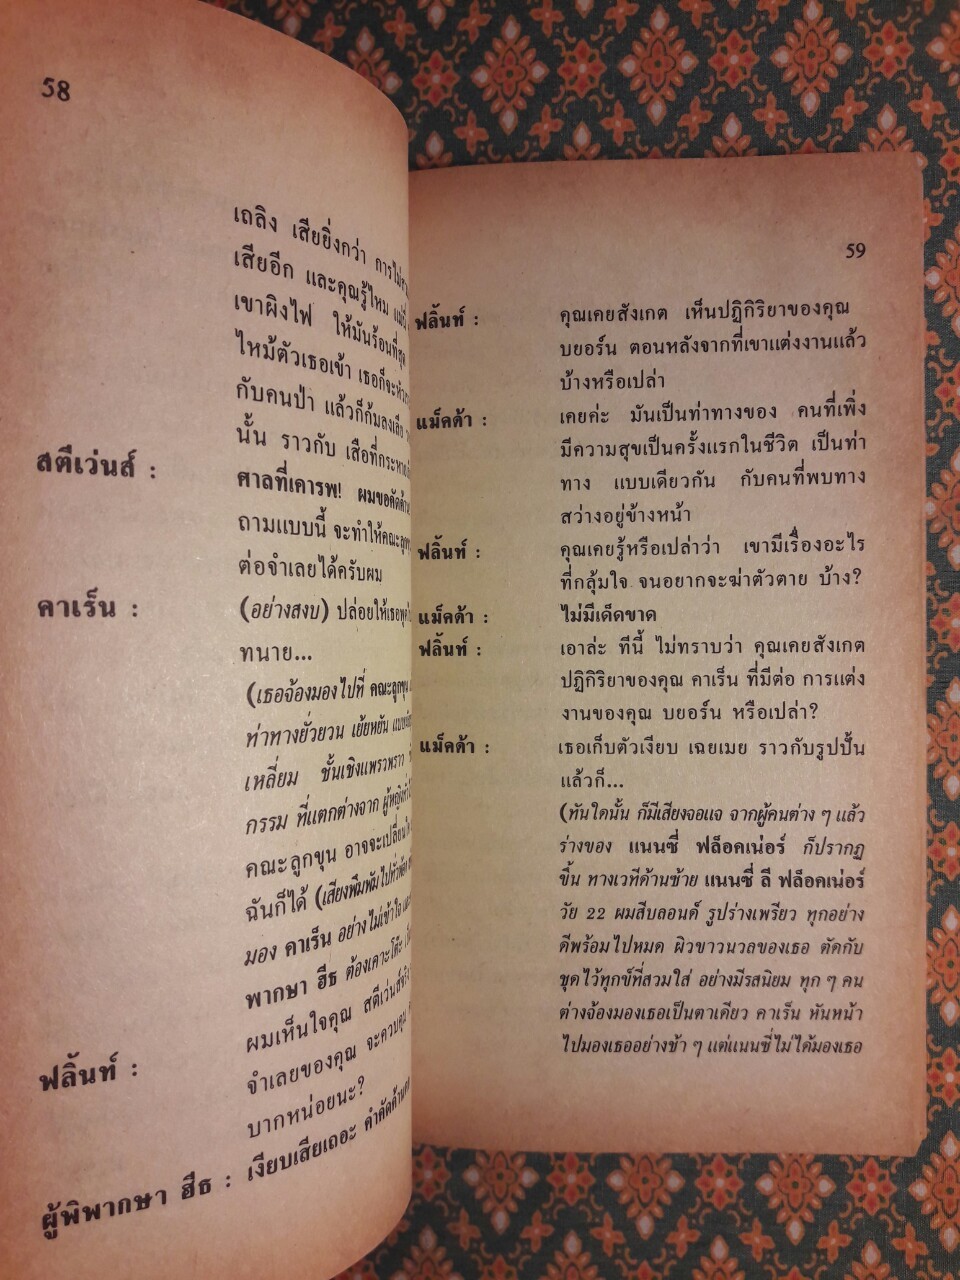 58
เถลิง เสียยิ่งกว่า การไม่
เสียอีก และคุณรู้ไหม
เขาผิงไฟ ให้มันร้อนที่สุด
ไหม้ตัวเธอเข้า เธอก็จะ
กับคนป่า แล้วก็ก้มลงเลีย
นั้น ราวกับ เสือที่กระหาย
สตีเว่นส์ : ศาลที่เคารพ! ผมขอคัดค้าน
ถามแบบนี้ จะทำให้คณะลูกขุน
ต่อจำเลยได้ครับผม
คาเร็น : (อย่างสงบ) ปล่อยให้เธอพูด
ทนาย...
(เธอจ้องมองไปที่ คณะลูกขุน
ท่าทางยั่วยวน เย้ยหยัน แบบ
เหลี่ยม ชั้นเชิงแพรวพราว
กรรม ที่แตกต่างจาก ผู้หญิง
คณะลูกขุน อาจจะเปลี่ยน
ฉันก็ได้ (เสียงพึมพัมไปทั่วห้อง
มอง คาเร็น อย่างไม่เข้าใจ
พากษา ฮีธ ต้องเคาะโต๊ะ
ฟลิ้นท์ : ผมเห็นใจคุณ สตีเว่นส์จริง
จำเลยของคุณ จะควบคุม
บากหน่อยนะ?
ผู้พิพากษา ฮีธ : เงียบเสียเถอะ คำคัดค้าน
59
ฟลิ้นท์ : คุณเคยสังเกต เห็นปฏิกิริยาของคุณ
บยอร์น ตอนหลังจากที่เขาแต่งงานแล้ว
บ้างหรือเปล่า
แม็คด้า : เคยค่ะ มันเป็นท่าทางของ คนที่เพิ่ง
มีความสุขเป็นครั้งแรกในชีวิต เป็นท่า
ทาง แบบเดียวกัน กับคนที่พบทาง
สว่างอยู่ข้างหน้า
ฟลิ้นท์ : คุณเคยรู้หรือเปล่าว่า เขามีเรื่องอะไร
ที่กลุ้มใจ จนอยากจะฆ่าตัวตาย บ้าง?
แม็คด้า : ไม่มีเด็ดขาด
ฟลิ้นท์ : เอาล่ะ ทีนี้ ไม่ทราบว่า คุณเคยสังเกต
ปฏิกิริยาของคุณ คาเร็น ที่มีต่อ การแต่ง
งานของคุณ บยอร์น หรือเปล่า?
แม็คด้า : เธอเก็บตัวเงียบ เฉยเมย ราวกับรูปปั้น
แล้วก็...
(ทันใดนั้น ก็มีเสียงจอแจ จากผู้คนต่าง ๆ แล้ว
ร่างของ แนนซี่ ฟล็อคเน่อร์ ก็ปรากฏ
ขึ้น ทางเวทีด้านซ้าย แนนซี่ ลี ฟล็อคเน่อร์
วัย 22 ผมสีบลอนด์ รูปร่างเพรียว ทุกอย่าง
ดีพร้อมไปหมด ผิวขาวนวลของเธอ ตัดกับ
ชุดไว้ทุกข์ที่สวมใส่ อย่างมีรสนิยม ทุก ๆ คน
ต่างจ้องมองเธอเป็นตาเดียว คาเร็น หันหน้า
ไปมองเธออย่างช้า ๆ แต่แนนซี่ไม่ได้มองเธอ